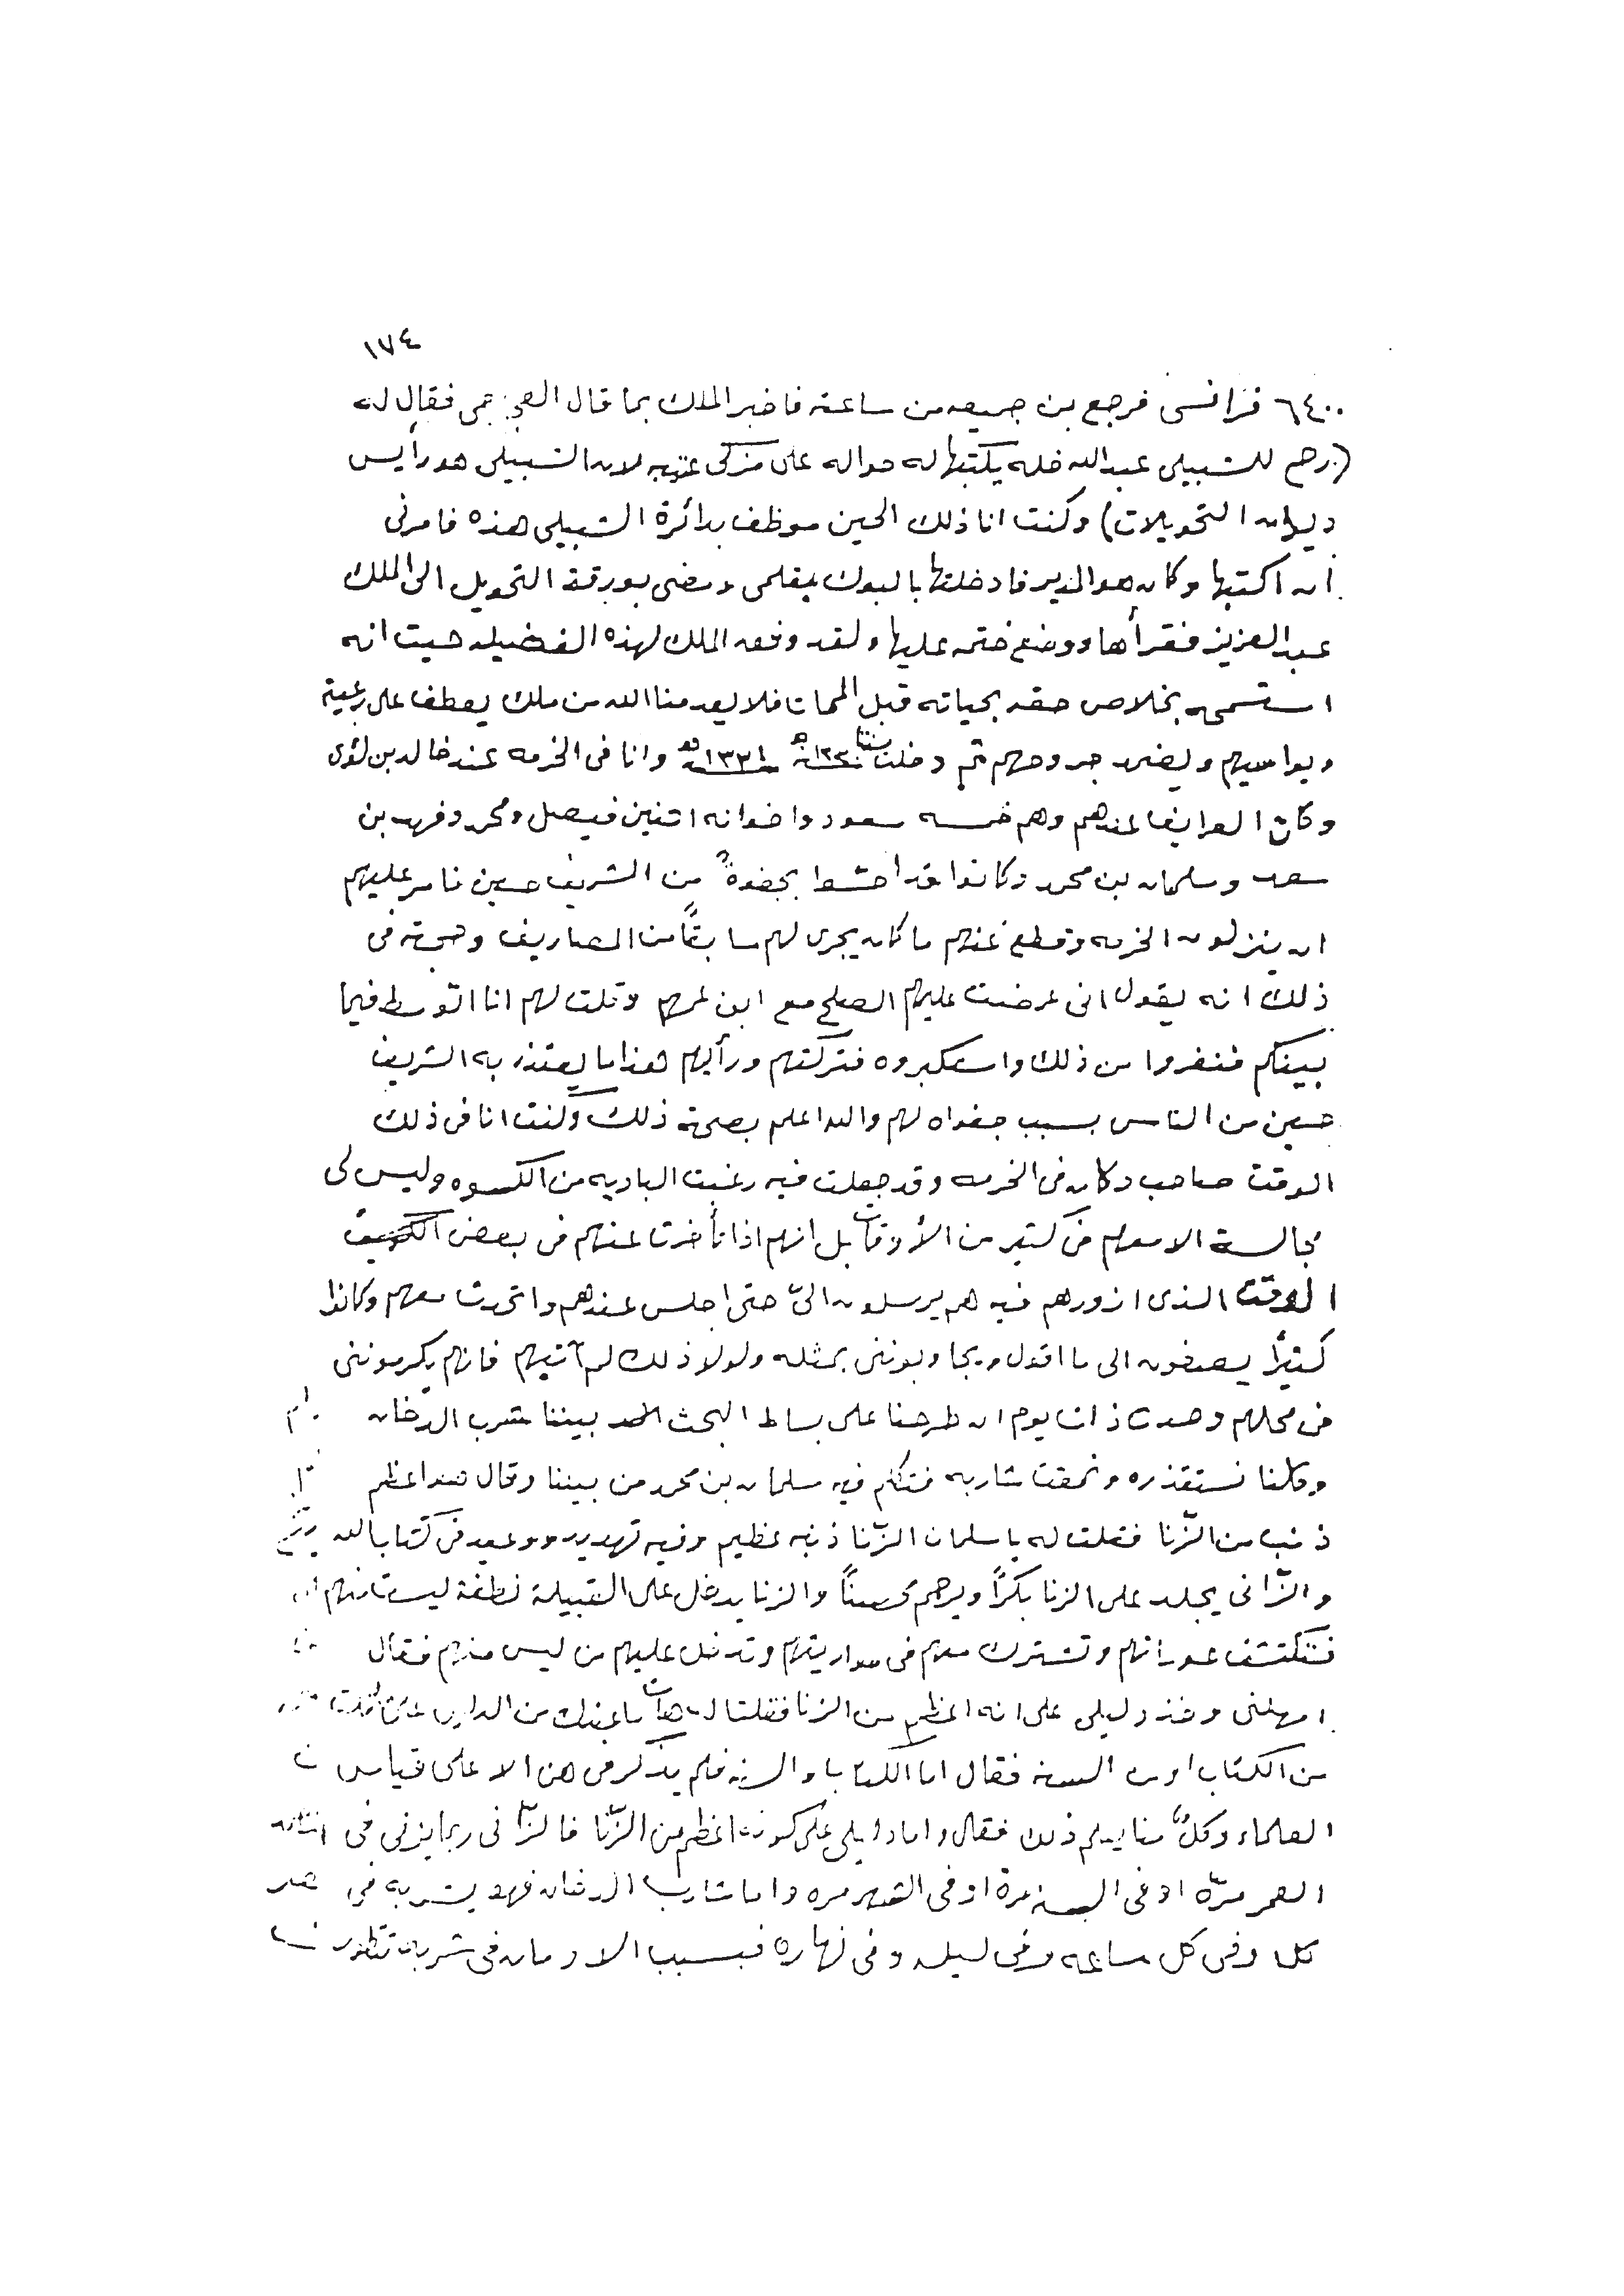 ١٧٤
٦٤٠٠ فرانسى فرجع بن جميعه من ساعته فاخبر الملك بما قال العجمى فقال له
(رح للشبيلى عبدالله خله يكتبها له حواله على مزكى عتيبه لان الشبيلى هو رأيس
ديوان التحويلات) وكنت انا ذلك الحين موظف بدائرة الشبيلى هذه فامرنى
ان اكتبها وكان هو المدير فادخلتها بالبوك بقلمى ومضى بورقة التحويل الى الملك
عبدالعزيز فقرأها ووضع ختمه عليها ولقد وفقه الملك لهذه الفضيله حيث انه
استسمحه بخلاص حقه بحياته قبل الممات فلا يعدمنا الله من ملك يعطف على رعيته
ويواسيهم ويضمد جروحهم ثم دخلت سنة ١٣٣١هـ وانا فى الخرمه عند خالد بن لؤى
وكان العرايف عندهم وهم خمسه سعود واخوانه اثنين فيصل ومحمد وفهد بن
سعد وسلمان بن محمد وكانوا قد احسوا بجفوةٍ من الشريف حسين فامر عليهم
ان ينزلون الخرمه وقطع عنهم ما كان يجرى لهم سابقاً من المصاريف وحجته فى
ذلك انه يقول انى عرضت عليهم الصلح مع ابن عمهم وقلت لهم انا اتوسط فيما
بينكم فنفروا من ذلك واستكبروه فتركتهم ورأيهم هذا ما يعتذر به الشريف
حسين من الناس بسبب جفواه لهم والله اعلم بصحة ذلك وكنت انا فى ذلك
الوقت صاحب دكان فى الخرمه وقد جعلت فيه رغبت الباديه من الكسوه وليس لى
مجالسة الا معهم فى كثير من الأوقات بل انهم اذا تأخرت عنهم فى بعض
الوقت الذى ازورهم فيه هم يرسلون الىّ حتى اجلس عندهم واتحدث معهم وكانوا
كثيراً يصغون الى ما اقول ويجاوبوننى بمثله ولولا ذلك لم آتيهم فانهم يكرموننى
فى محلهم وحدث ذات يوم ان طرحنا على بساط البحث بيننا شرب الدخان
وكلنا نستقذره ونمقت شاربه فتكلم فيه سلمان بن محمد من بيننا وقال هذا اعظم
ذنب من الزّنا فقلت له يا سلمان الزّنا ذنبه عظيم وفيه تهديد ووعيد فى كتاب الله
والزّانى يجلد على الزنا بكراً ويرجم محصناً والزنا يدخل على القبيلة نطفة ليست منهم
فتكتشف عوراتهم وتشترك معهم فى مواريثهم وتدخل عليهم من ليس منهم فقال
امهلنى وخذ دليلى على انه اعظم من الزنا فقلت له هات ما عندك من الدليل
من الكتاب او من السنه فقال اما الكتاب والسنه فلم يذكر فى هن الا على قياس
العلماء وكلٌ منا يعلم ذلك فقال واما دليلى على كونه اعظم من الزّنا فالزّانى ربما يزنى فى
العمر مرّه او فى السنه مرة او فى الشهر مره واما شارب الدخان فهو يشربه فى
كل وفى كل ساعه وفى ليله وفى نهاره فبسبب الادمان فى شربه